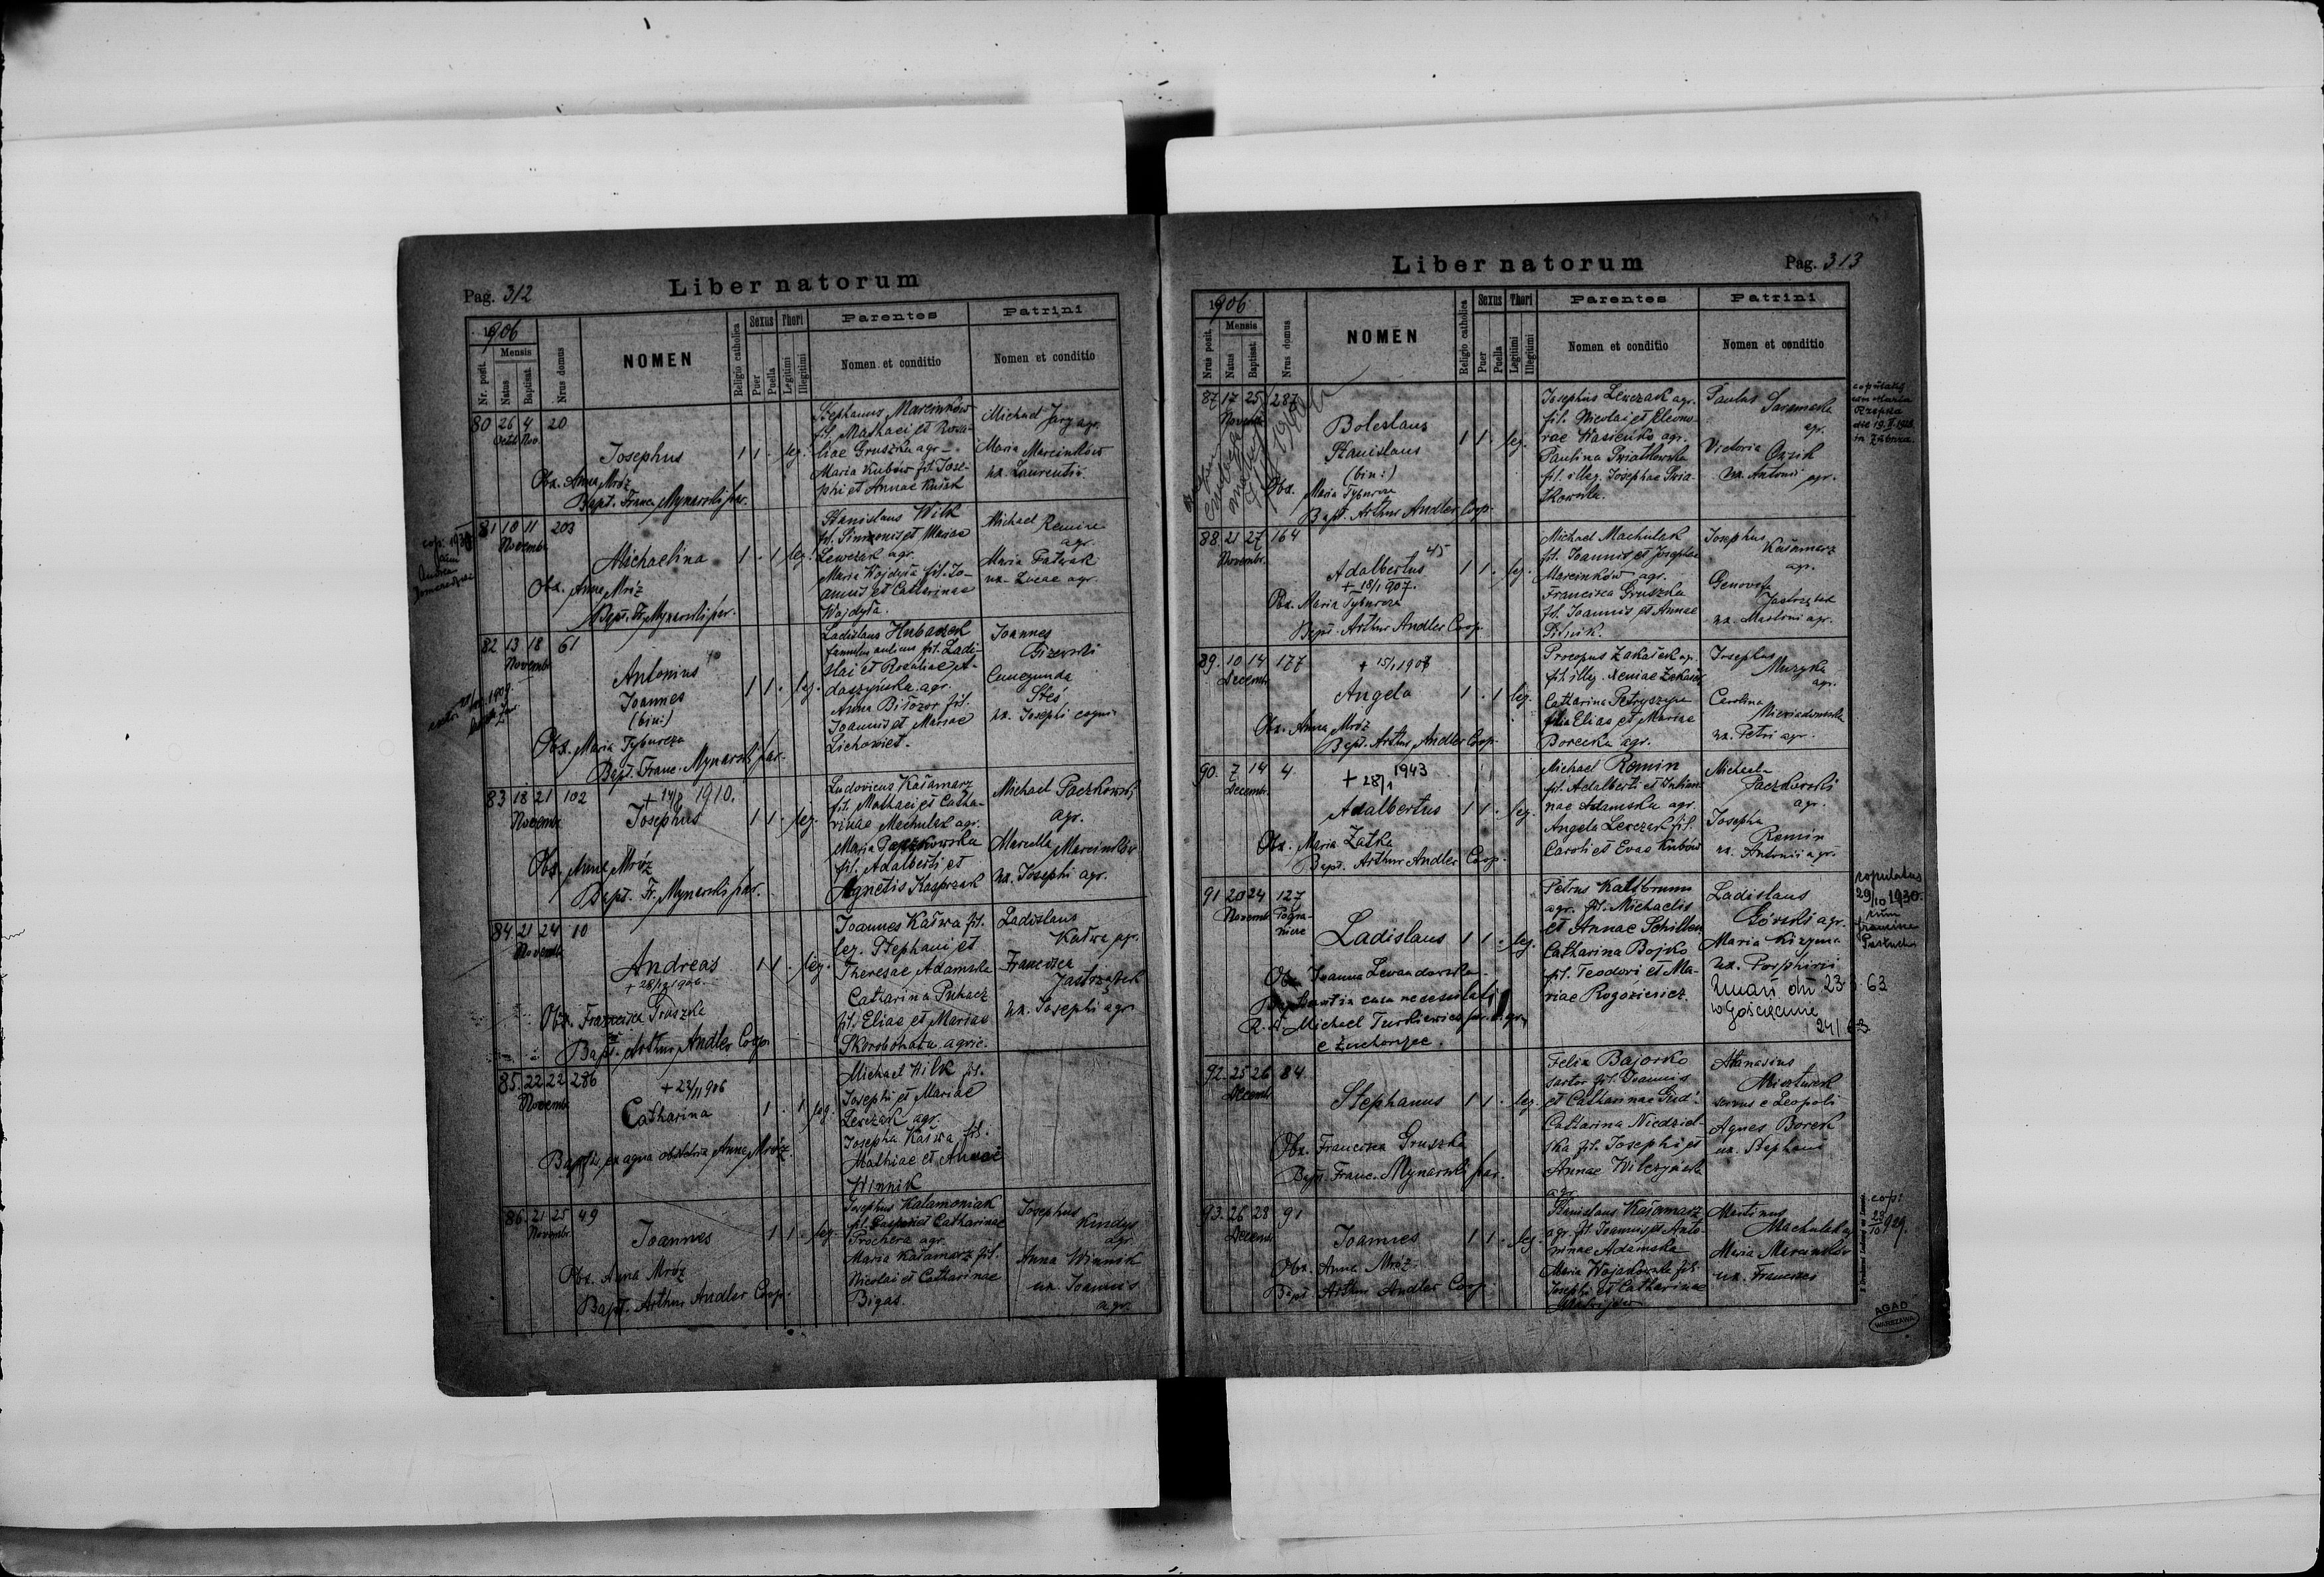 Pag. 312
Liber natorum
1906
Nr. posit.
Mensis
Natus
Baptisat.
Nrus domus
NOMEN
Religio catholica
Sexus
Puer
Puella
Thori
Legitimi
Illegitimi
Parentes
Nomen et conditio
Patrini
Nomen et conditio
80 26 4 20
Octob Nov.
Josephus
1 1 . leg.
Obs. Anna Mróz
Bapt. Franc. Mynarski par.
Stephanus Marcinków
fil. Mathaei et Rosa-
liae Gruszka agr.
Maria Kubów fil. Jose-
phi et Annae
Michael Jarg agr.
Maria Marcinków
ux. Laurentii
81 10 11 203
Novembr.
Michaelina
1 . 1 leg.
Obs. Anna Mróz
Bapt. Fr. Mynarski par.
Stanislaus Wilk
fil. Simeonis et Mariae
Lewczak agr.
Maria Wojdyła fil. Jo-
annis et Catharinae
Wojdyła.
Michael Remin
agr.
Maria
ux. Lucae agr.
82 13 18 61
Novembr.
Antonius
Joannes
(bin:)
1 1 . leg.
Obs. Maria Tyburcza
Bapt. Franc. Mynarski par.
Ladislaus Hubaczek
famulus aulicus fil. Ladi-
slai et Rosaliae
agr.
Anna fil.
Joannis et Mariae
Lichowiet.
Joannes
Gizewski
Cunegunda
Steś
ux. Josephi
83 18 21 102
Novembr.
+ 14/ 1910.
Josephus
1 1 . leg.
Obs. Anna Mróz
Bapt. Fr. Mynarski par.
Ludovicus Kałamarz
fil. Mathaei et Catha-
rinae Machulak agr.
Maria Paczkowska
fil. Adalberti et
Agnetis Kasprzak
Michael Paczkowski
agr.
Marcella Marcinków
ux. Josephi agr.
84 21 24 10
Novembr.
Andreas
+ 28/12 1906.
1 1 . leg.
Obs. Francisca Gruszka
Bapt. Arthur Andler Coop.
Joannes Kaśwa fil.
leg. Stephani et
Theresae Adamska
Catharina Puhacz
fil. Eliae et Mariae
Skorobohata agric.
Ladislaus
Kaśwa agr.
Francisca
Jastrząbek
ux. Josephi agr.
85. 22 22 286
Novembr.
+ 23/11 906
Catharina
1 . 1 leg.
Bapt. ex aqua obstetrix Anna Mróz
Michael Wilk fil.
Josephi et Mariae
Lewczak agr.
Josepha Kaśwa fil.
Mathiae et Annae
Winnik
86. 21 25 49
Novembr.
Joannes
1 1 . leg.
Obs. Anna Mróz
Bapt. Arthur Andler Coop.
Josephus Kalamoniak
fil. Gaspari et Catharinae
Prochera agr.
Maria Kałamarz fil.
Nicolai et Catharinae
Bigas.
Josephus
Kindys
agr.
Anna Winnik
ux. Joannis
agr.
Liber natorum
Pag. 313
1906
Nrus posit.
Mensis
Natus
Baptisat.
Nrus domus
NOMEN
Religio catholica
Sexus
Puer
Puella
Thori
Legitimi
Illegitimi
Parentes
Nomen et conditio
Patrini
Nomen et conditio
87 17 25 287
Novembr.
Boleslaus
Stanislaus
(bin:)
1 1 . leg.
Obs. Maria Tyburcza
Bapt. Arthur Andler Coop.
Josephus Lewczak agr.
fil. Nicolai et Eleono-
rae Wasieńko agr.
Paulina Swiatkowska
fil. illeg. Josephae Swia-
tkowska.
Paulus Saramaka
agr.
Victoria Orzik
ux. Antonii agr.
copulatus
cum Maria
Rzepka
die 19.
in Zábnica.
88 21 27 164
Novembr.
45
Adalbertus
+ 18/1 907.
1 1 . leg.
Obs. Maria Tyburcza
Bapt. Arthur Andler Coop.
Michael Machulak
fil. Joannis et Josephae
Marcinków agr.
Francisca Gruszka
fil. Joannis et Annae
Pitnik.
Josephus
Kałamarz
agr.
Genovefa
Jastrząbek
ux. Martini agr.
89. 10 14 177
Decembr.
+ 15/1 1908
Angela
1 . 1 leg.
Obs. Anna Mróz
Bapt. Arthur Andler Coop.
Procopus Zakałek agr.
fil. illeg. Xeniae
Catharina Petryszyn
filia Eliae et Mariae
Borecka agr.
Josephus
Muzyka
agr.
Carolina
Niewiadomska
ux. Petri agr.
90. 7 14 4
Decembr.
+ 28/1 1943
Adalbertus
1 1 . leg.
Obs. Maria Zatka
Bapt. Arthur Andler Coop.
Michael Romin
fil. Adalberti et Julian-
nae Adamska agr.
Angela Lewczak fil.
Caroli et Evae Kubów
Michael
Paczkowski
agr.
Josepha
Remin
ux. Antonii agr.
91 20 24 127
Novembr.
Ladislaus
1 1 . leg.
Obs. Joanna Lewandowska
Bapt. in casu necessitatis
R. d. Michael Turkiewicz par. gr.
e Zuchorzyce.
Petrus Kaltbrunn
agr. fil. Michaelis
et Annae Schilden
Catharina Bojko
fil. Teodori et Ma-
riae Rogoziewicz.
Ladislaus
Górski agr.
Maria Kizyma
ux. Porphirii
Zmarł dn 23 3 63
w Gościęcinie
24/ 63
copulatus
29/10 1930.
cum
Francisca
92. 25 26 84
Decemb.
Stephanus
1 1 . leg.
Obs. Francisca Gruszka
Bapt. Franc. Mynarski par.
Felix Bajorko
sartor fil. Joannis
et Catharinae
Catharina Niedziel-
ska fil. Josephi et
Annae Wilczyńska
agr.
Atanasius
servus e Leopoli
Agnes Borek
ux. Stephani
93. 26 28 91
Decemb.
Joannes
1 1 . leg.
Obs. Anna Mróz
Bapt. Arthur Andler Coop.
Stanislaus Kałamarz
agr. fil. Joannis et Anto-
ninae Adamska
Maria Wojakowska fil.
Josephi et Catharinae
Martinus
Machulak agr
Maria Marcinków
ux. Francisci
cop:
23/10 929.
AGAD
WARSZAWA